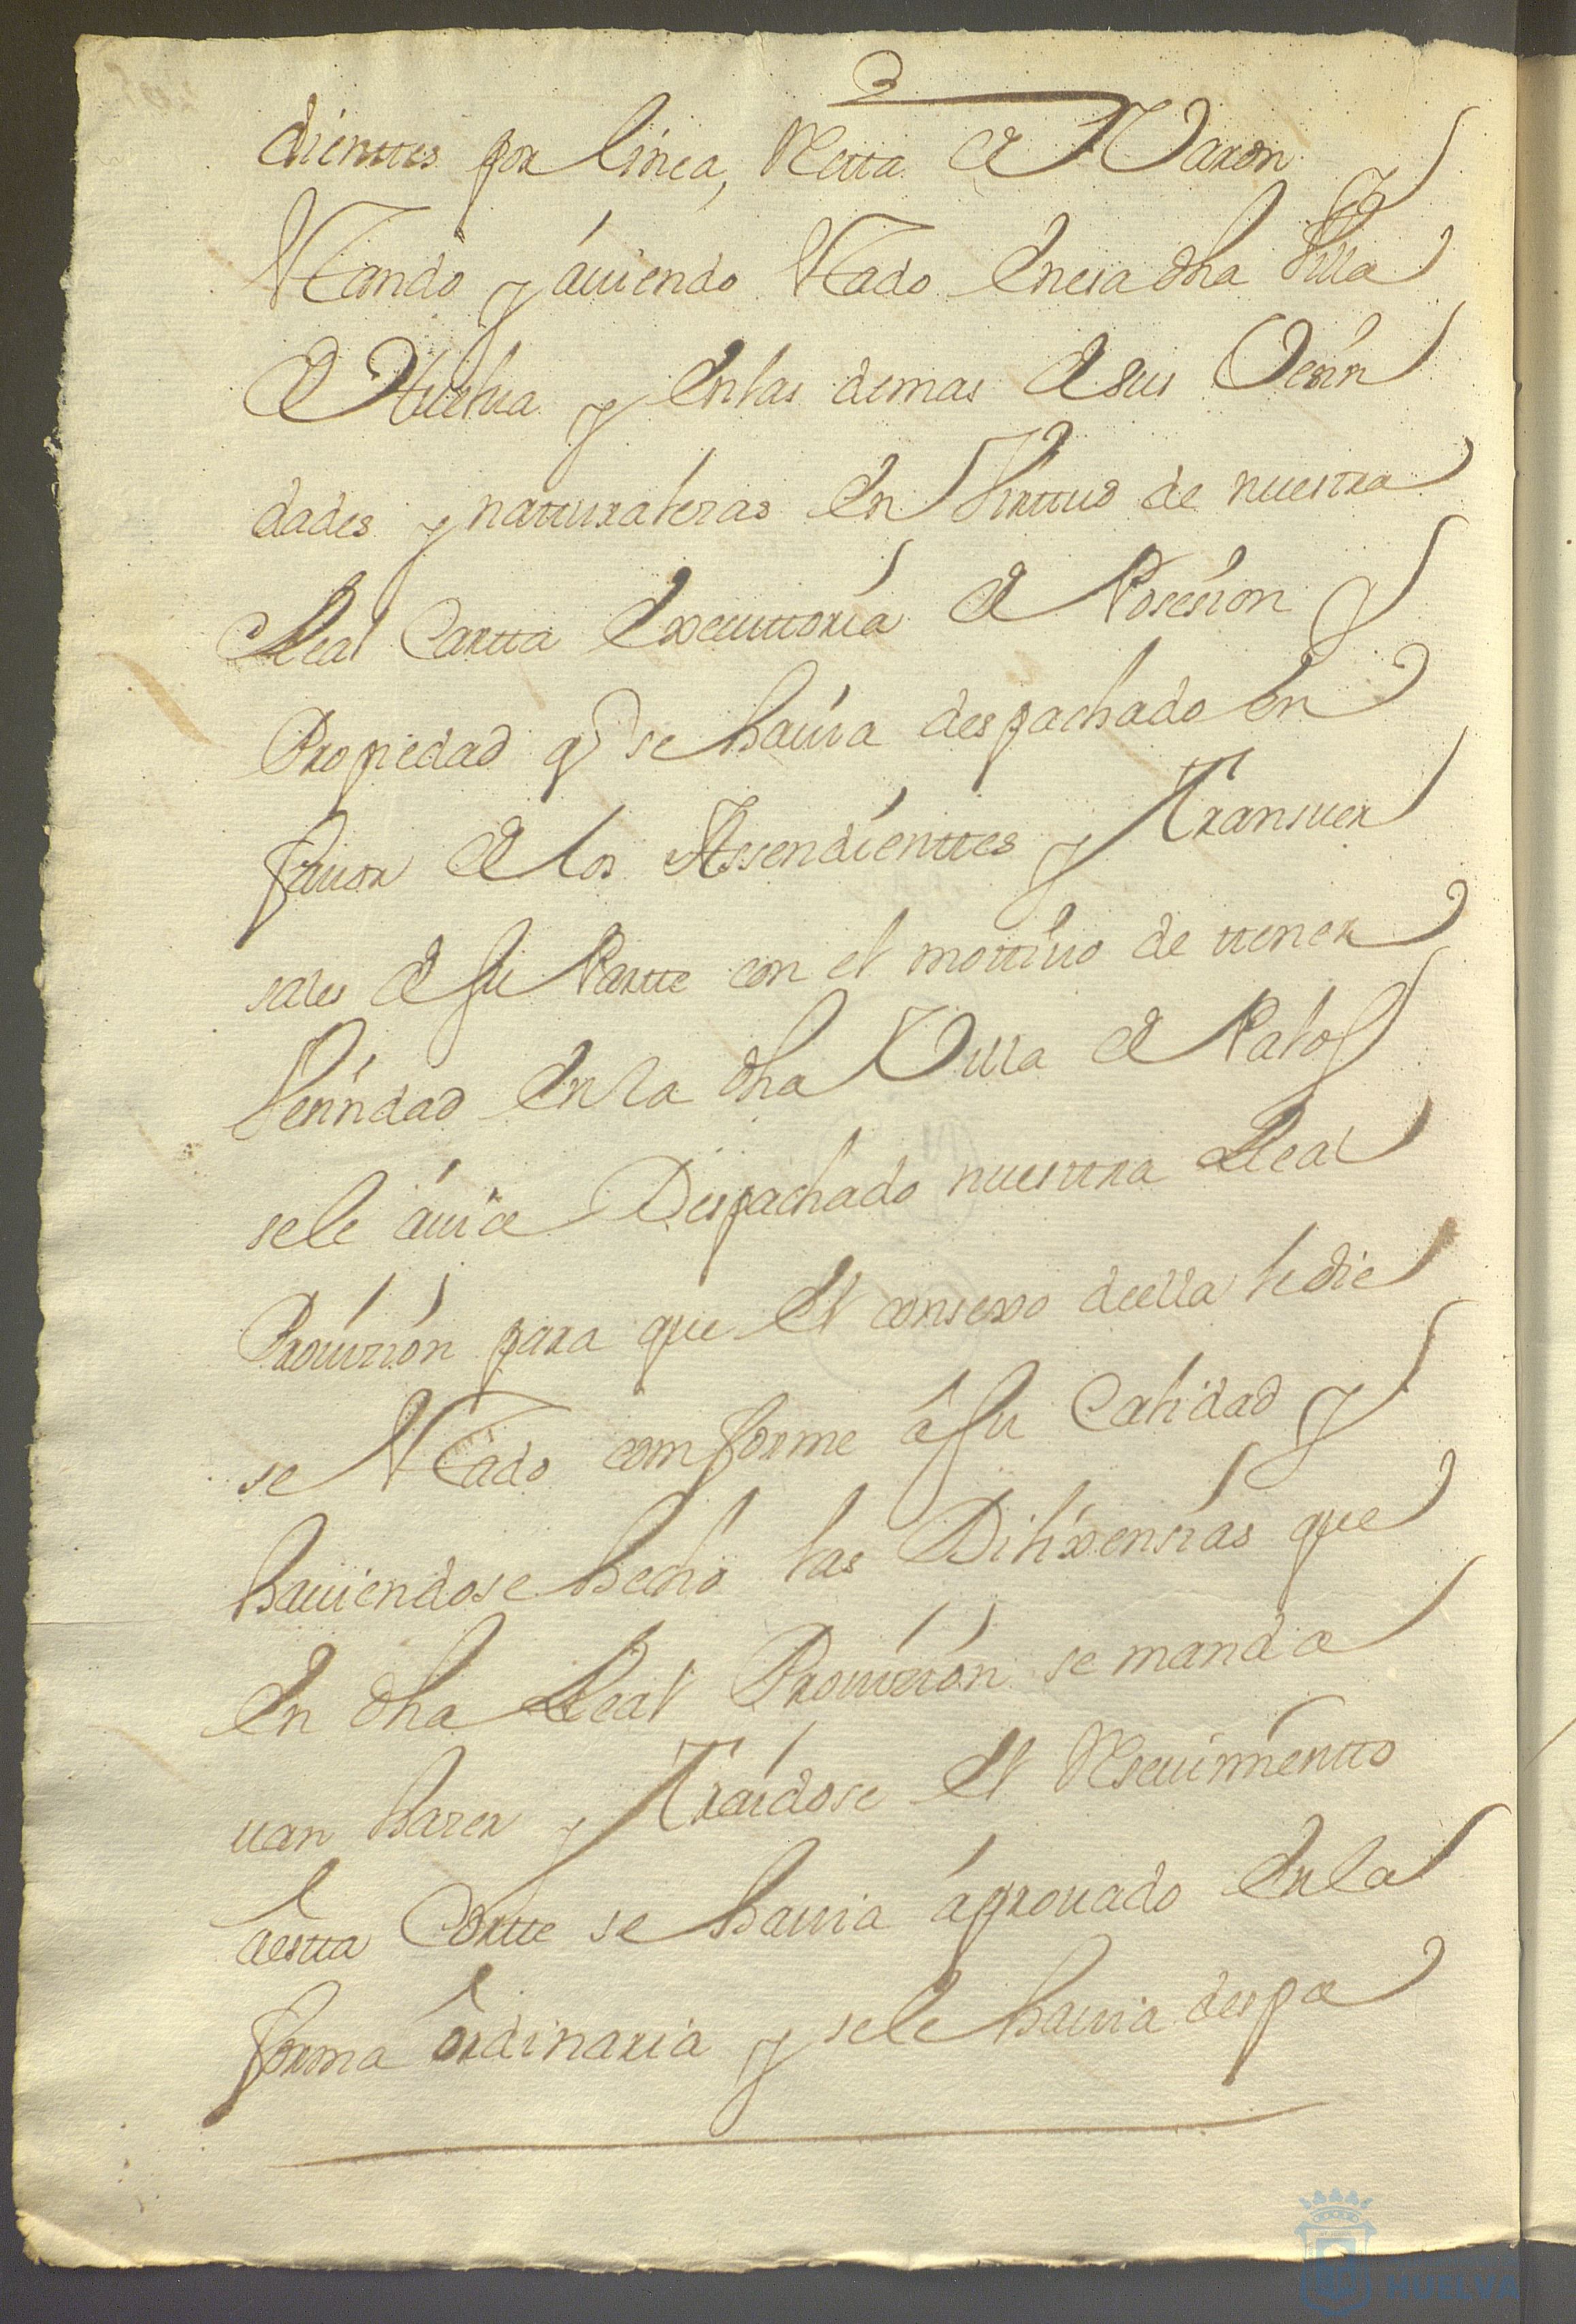 dienttes por linea, Retta de Varon y
Stando y áuiendo Stado Enesa dha Villa
de Huelua y Enlas demas de sus Vesin
dades y natturalezas En Virttud de nuestra
Real Cartta Executtoria de Posesion y
Propiedad q̃ se hauia despachado en
fauor de los Assendienttes y Transuer
sales de su Partte con el mottiuo de ttener
Vesindad En la dha Villa de Palos
sele áuia Despachado nuesttra Real
Prouizion para que El consexo deella le die
se Stado comforme á su Calidad y
hauiendose hecho las Dilixensias que
En dha Real Prouizion se manda
uan hazer y Traidose El Reseuimientto
áestta Cortte se hauia áprouado En la
forma ordinaria y sele hauia despa
HUELVA